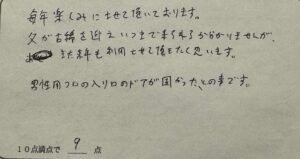 毎年楽しみにさせて頂いております。
父が古稀を迎えいつまで来られるかわかりませんが、
また来年も利用させて頂きたく思います。
男性用フロの入り口のドアが固かった、との事です。
10点満点で 9 点